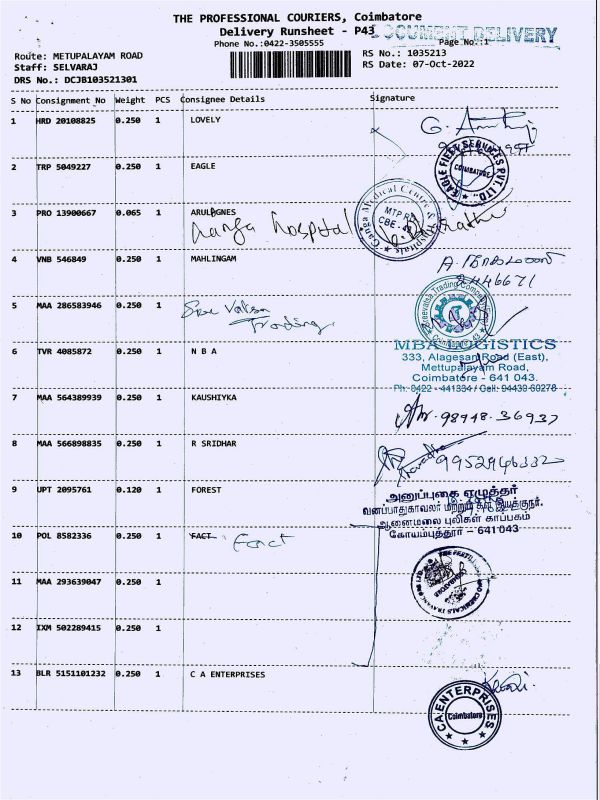 THE PROFESSIONAL COURIERS, Coimbatore
Delivery Runsheet - P43
DOCUMENT DELIVERY
Phone No.:0422-3505555
Page No.:1
Route: METUPALAYAM ROAD
RS No.: 1035213
Staff: SELVARAJ
RS Date: 07-Oct-2022
DRS No.: DCJB103521301
S No Consignment No Weight PCS Consignee Details Signature
1 HRD 20108825 0.250 1 LOVELY
2 TRP 5049227 0.250 1 EAGLE
EAGLE FIELD SERVICES PVT. LTD.
COIMBATORE
3 PRO 13900667 0.065 1 ARULAGNES
Ganga Hospital
Ganga Medical Centre & Hospitals
MTP Rd
CBE-43
4 VNB 546849 0.250 1 MAHLINGAM
9446671
5 MAA 286583946 0.250 1
Sree Valsa
Trading
Sreevalsa Trading Company
Coimbatore 43
6 TVR 4085872 0.250 1 N B A
MBA LOGISTICS
333, Alagesan Road (East),
Mettupalayam Road,
Coimbatore - 641 043.
Ph: 0422 - 441334 / Cell: 94439 60278
7 MAA 564389939 0.250 1 KAUSHIYKA
98948.36937
8 MAA 566898835 0.250 1 R SRIDHAR
9952946332
9 UPT 2095761 0.120 1 FOREST
அனுப்புகை எழுத்தர்
வனப்பாதுகாவலர் மற்றும் கள இயக்குநர்.
ஆனைமலை புலிகள் காப்பகம்
கோயம்புத்தூர் - 641 043
10 POL 8582336 0.250 1 FACT
Fact
11 MAA 293639047 0.250 1
12 IXM 502289415 0.250 1
13 BLR 5151101232 0.250 1 C A ENTERPRISES
CA ENTERPRISES
Coimbatore